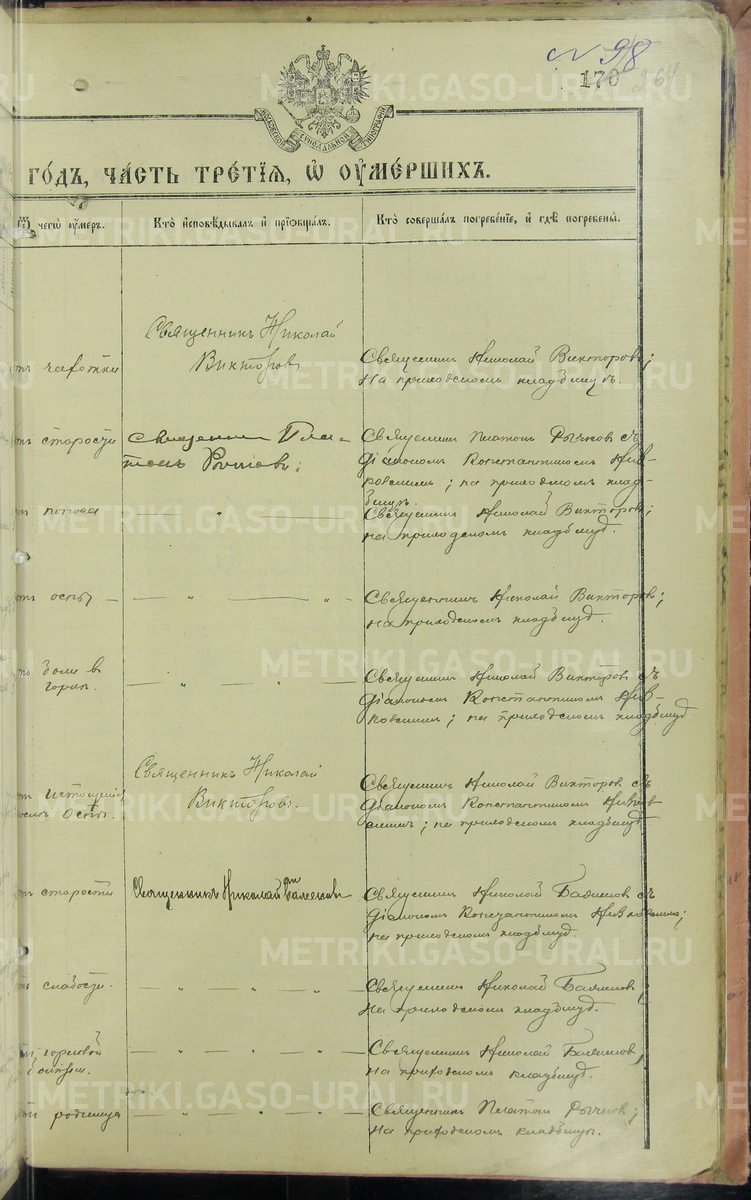 № 98
170 264
МОСКОВСКОЙ СѴНОДАЛЬНОЙ ТИПОГРАФІИ
ГО́ДЪ, ЧА́СТЬ ТРЕ́ТІѦ, Ѽ ОУМЕ́РШИХЪ.
Ѿ чегѡ̀ оу́меръ.
Кто̀ и҆сповѣ́дывалъ и҆ прїѡбща́лъ.
Кто̀ соверша́лъ погребе́нїе, и҆ гдѣ̀ погребены̀.
отъ чахотки
Священникъ Николай
Викторовъ
Священникъ Николай Викторовъ;
на приходскомъ кладбищѣ.
отъ старости
Священникъ Пла-
тонъ Рычковъ;
Священникъ Платонъ Рычковъ съ
діакономъ Константиномъ
на приходскомъ клад-
бищѣ.
отъ поноса
"
Священникъ Николай Викторовъ;
на приходскомъ кладбищѣ.
отъ оспы
— " — " —
Священникъ Николай Викторовъ;
на приходскомъ кладбищѣ.
боли въ
горлѣ.
— " — " —
Священникъ Николай Викторовъ съ
діакономъ Константиномъ
на приходскомъ кладбищѣ
отъ
оспы
Священникъ Николай
Викторовъ.
Священникъ Николай Викторовъ съ
діакономъ Константиномъ
на приходскомъ кладбищѣ
отъ старости
Священникъ Николай
Священникъ Николай съ
діакономъ Константиномъ
на приходскомъ кладбищѣ.
отъ слабости.
— " — " — " —
Священникъ Николай
на приходскомъ кладбищѣ.
отъ горловой
— " — " — " —
Священникъ Николай
на приходскомъ кладбищѣ.
отъ родимца
— " — " — " —
Священникъ Платонъ Рычковъ;
на приходскомъ кладбищѣ.
METRIKI.GASO-URAL.RU